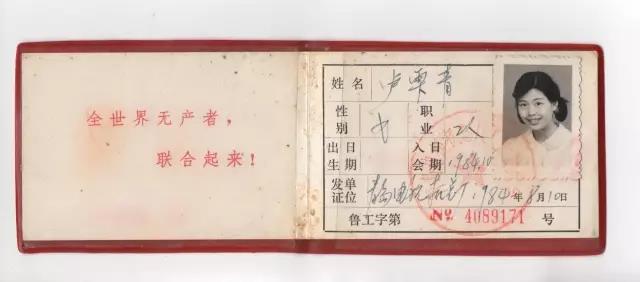 全世界无产者，
联合起来！
姓名
性别 女 职业 工人
出生日期 入会日期 1984.10
发证单位 1984年8月10日
鲁工字第 №. 4089171 号